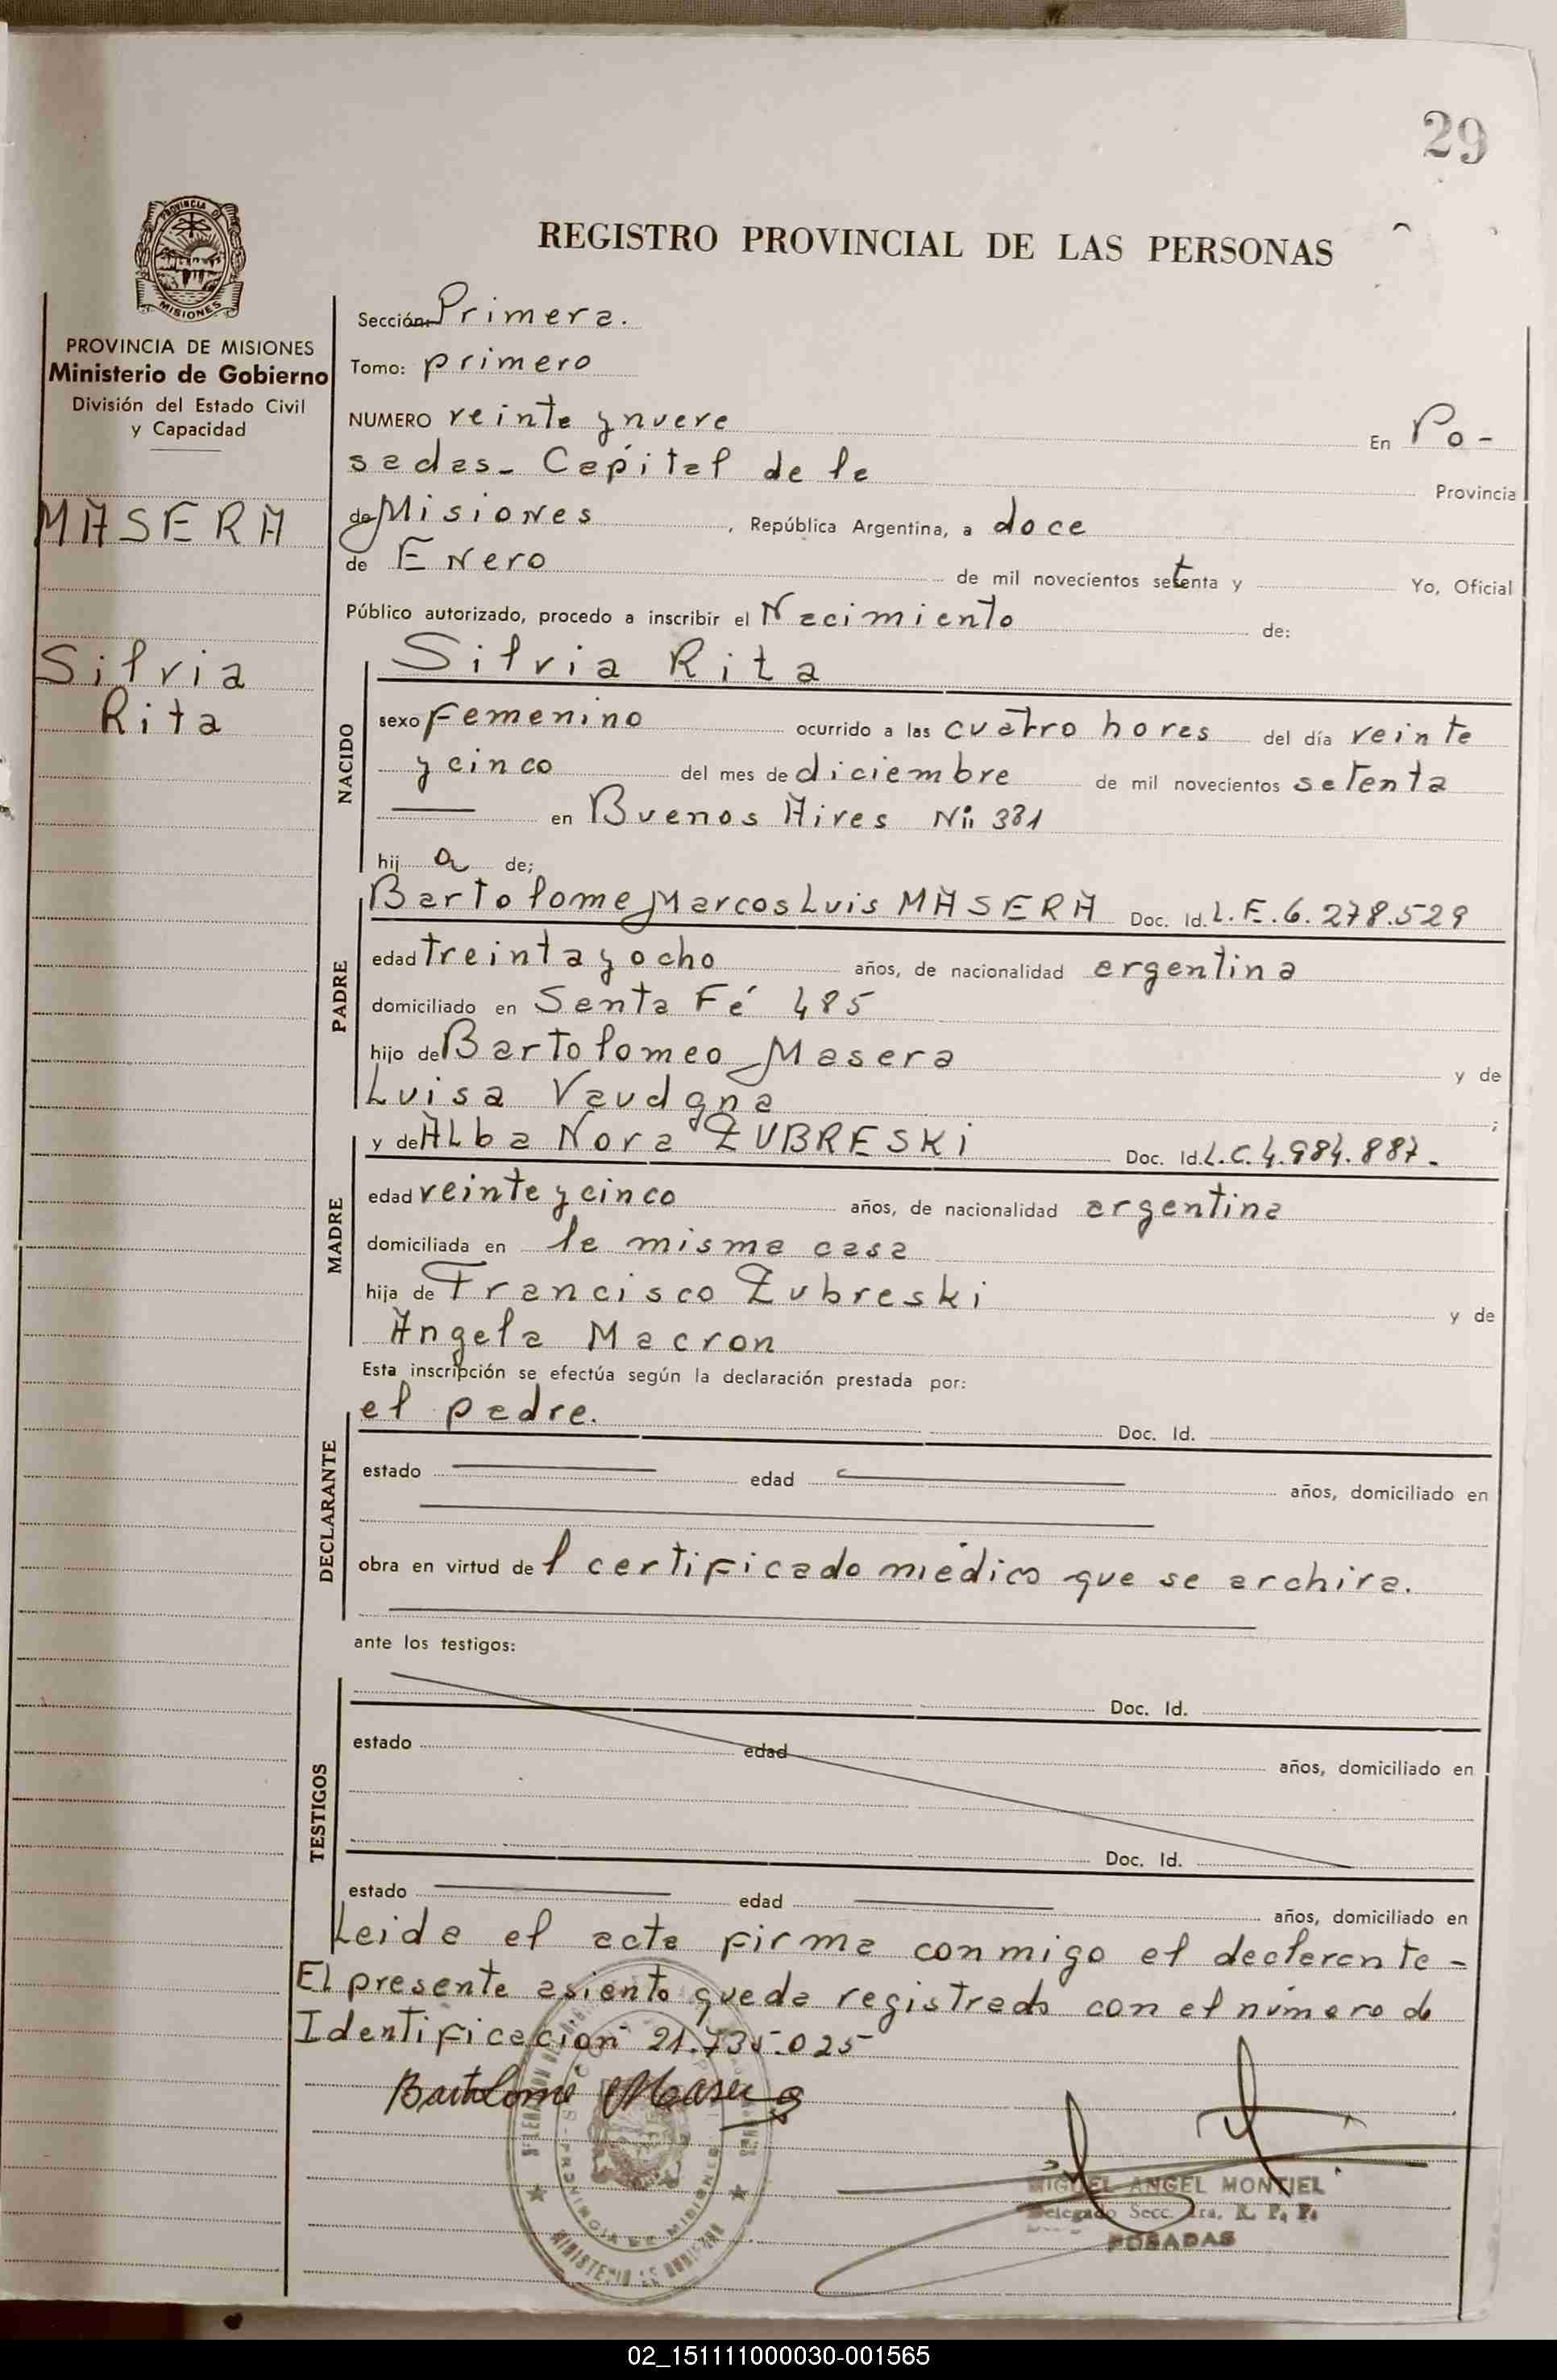 29
REGISTRO PROVINCIAL DE LAS PERSONAS
PROVINCIA DE MISIONES
Ministerio de Gobierno
División del Estado Civil
y Capacidad
MASERA
Silvia
Rita
Sección: Primera.
Tomo: primero
NUMERO veinte y nueve En Po-
sadas - Capital de la Provincia
de Misiones, República Argentina, a doce
de Enero de mil novecientos setenta y Yo, Oficial
Público autorizado, procedo a inscribir el Nacimiento de:
NACIDO
Silvia Rita
sexo Femenino ocurrido a las cuatro horas del día veinte
y cinco del mes de diciembre de mil novecientos setenta
en Buenos Aires Nº 381
hij a de;
PADRE
Bartolome Marcos Luis MASERA Doc. Id. L.E. 6.278.529
edad treinta y ocho años, de nacionalidad argentina
domiciliado en Santa Fé 485
hijo de Bartolomeo Masera y de
Luisa Vaudgna;
MADRE
y de Alba Nora ZUBRESKI Doc. Id. L.C. 4.984.887.
edad veinte y cinco años, de nacionalidad argentina
domiciliada en la misma casa
hija de Francisco Zubreski y de
Angela Macron
Esta inscripción se efectúa según la declaración prestada por:
DECLARANTE
el padre. Doc. Id.
estado edad años, domiciliado en
obra en virtud de l certificado médico que se archiva.
ante los testigos:
TESTIGOS
Doc. Id.
estado edad años, domiciliado en
Doc. Id.
estado edad años, domiciliado en
Leida el acta firma conmigo el declarante -
El presente asiento queda registrado con el número de
Identificación 21.735.025
Bartolome Masera
MIGUEL ANGEL MONTIEL
Delegado Secc. 1ra. R. P. P.
POSADAS
PROVINCIA DE MISIONES
MINISTERIO DE GOBIERNO
02_151111000030-001565